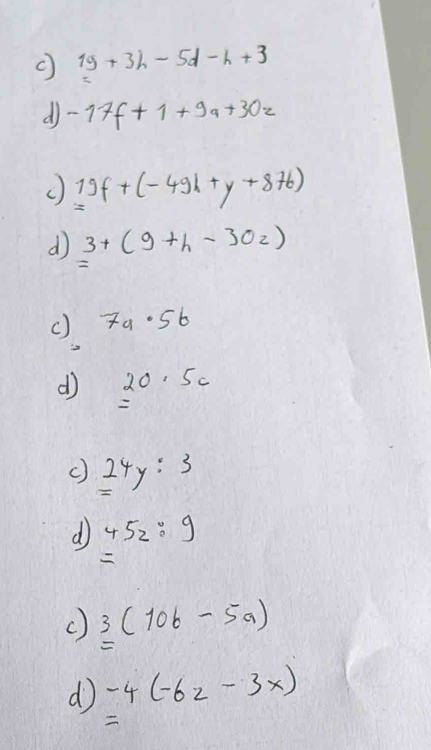 c) 19 + 3h - 5d - h + 3
d) - 17f + 1 + 9a + 30z
c) 19f + (- 49h + y + 87b)
d) 3 + ( 9 + h - 30z )
c) 7a · 5b
d) 20 · 5c
c) 24y : 3
d) 45z : 9
c) 3 ( 10b - 5a )
d) -4 (-6z - 3x)